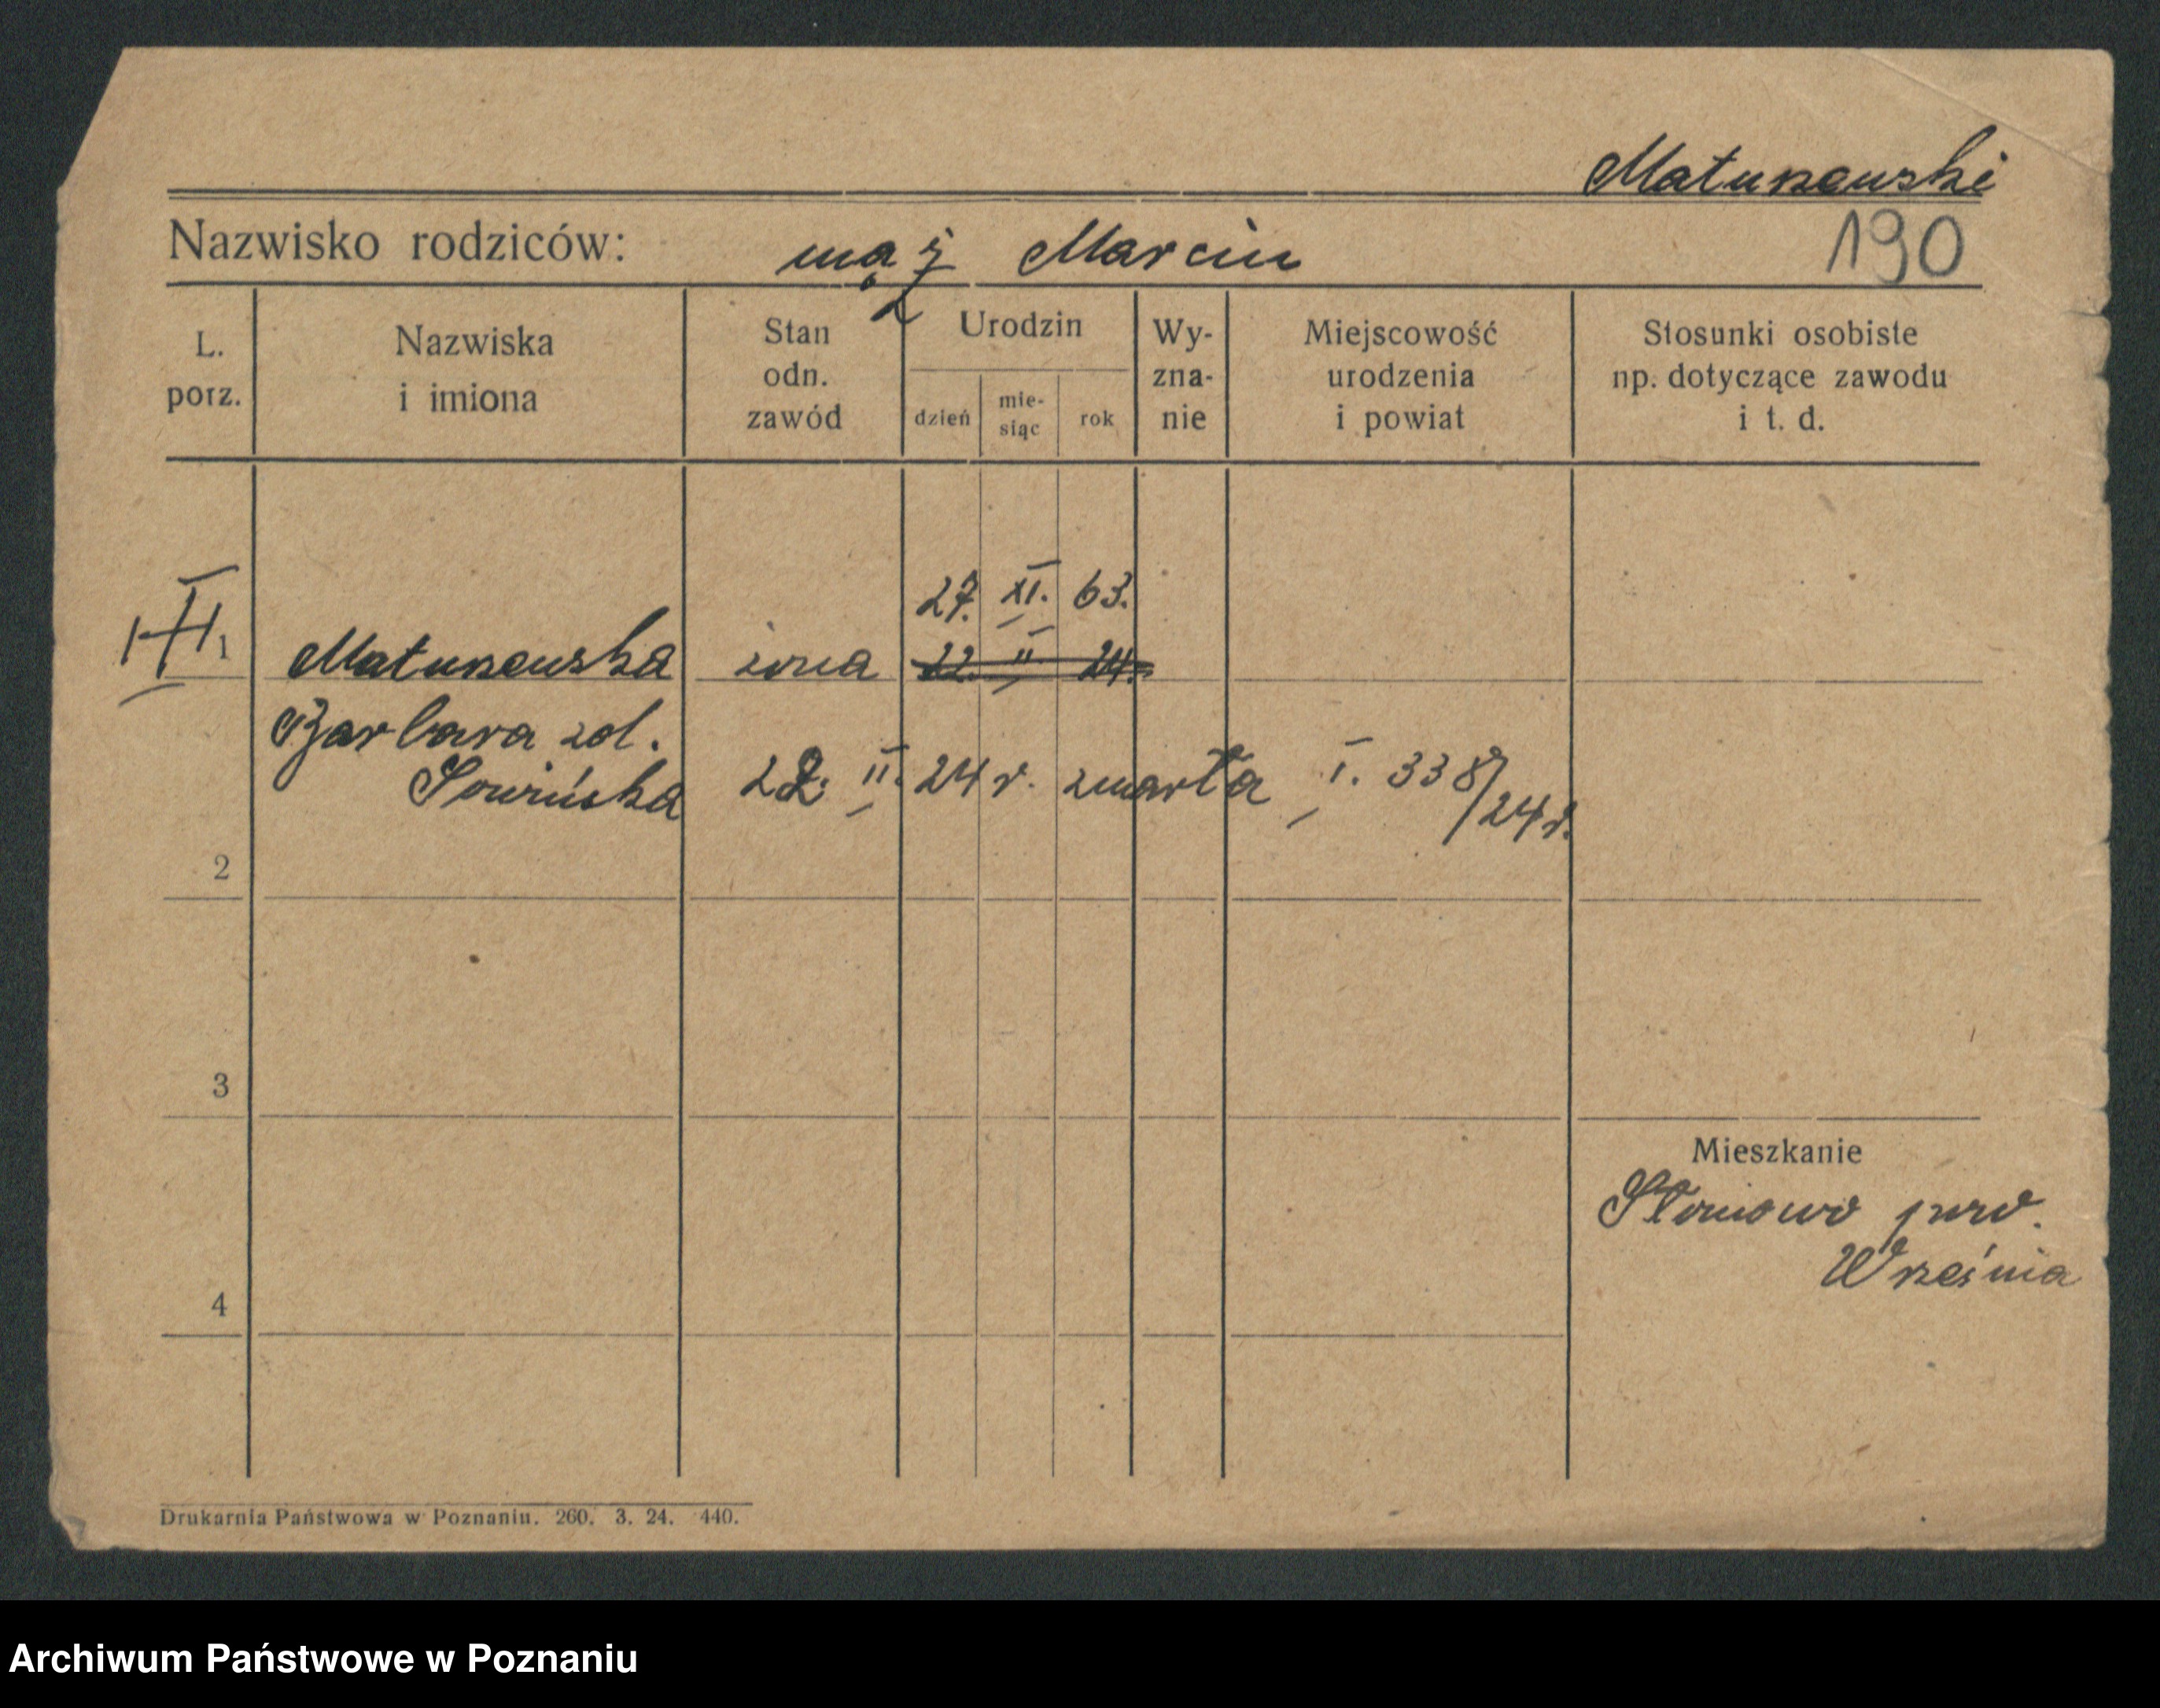 Matuszewski
Nazwisko rodziców: mąż Marcin 190
L. porz. Nazwiska i imiona Stan odn. zawód Urodzin dzień mie-siąc rok Wy-zna-nie Miejscowość urodzenia i powiat Stosunki osobiste np. dotyczące zawodu i t. d.
27. XI. 63.
1 Matuszewska żona 22. II. 24.
Barbara zd.
Sowińska 22. II. 24 r. zmarła I. 338/24 r.
2
3
Mieszkanie
Słomowo pow.
Września
4
Drukarnia Państwowa w Poznaniu. 260. 3. 24. 440.
Archiwum Państwowe w Poznaniu